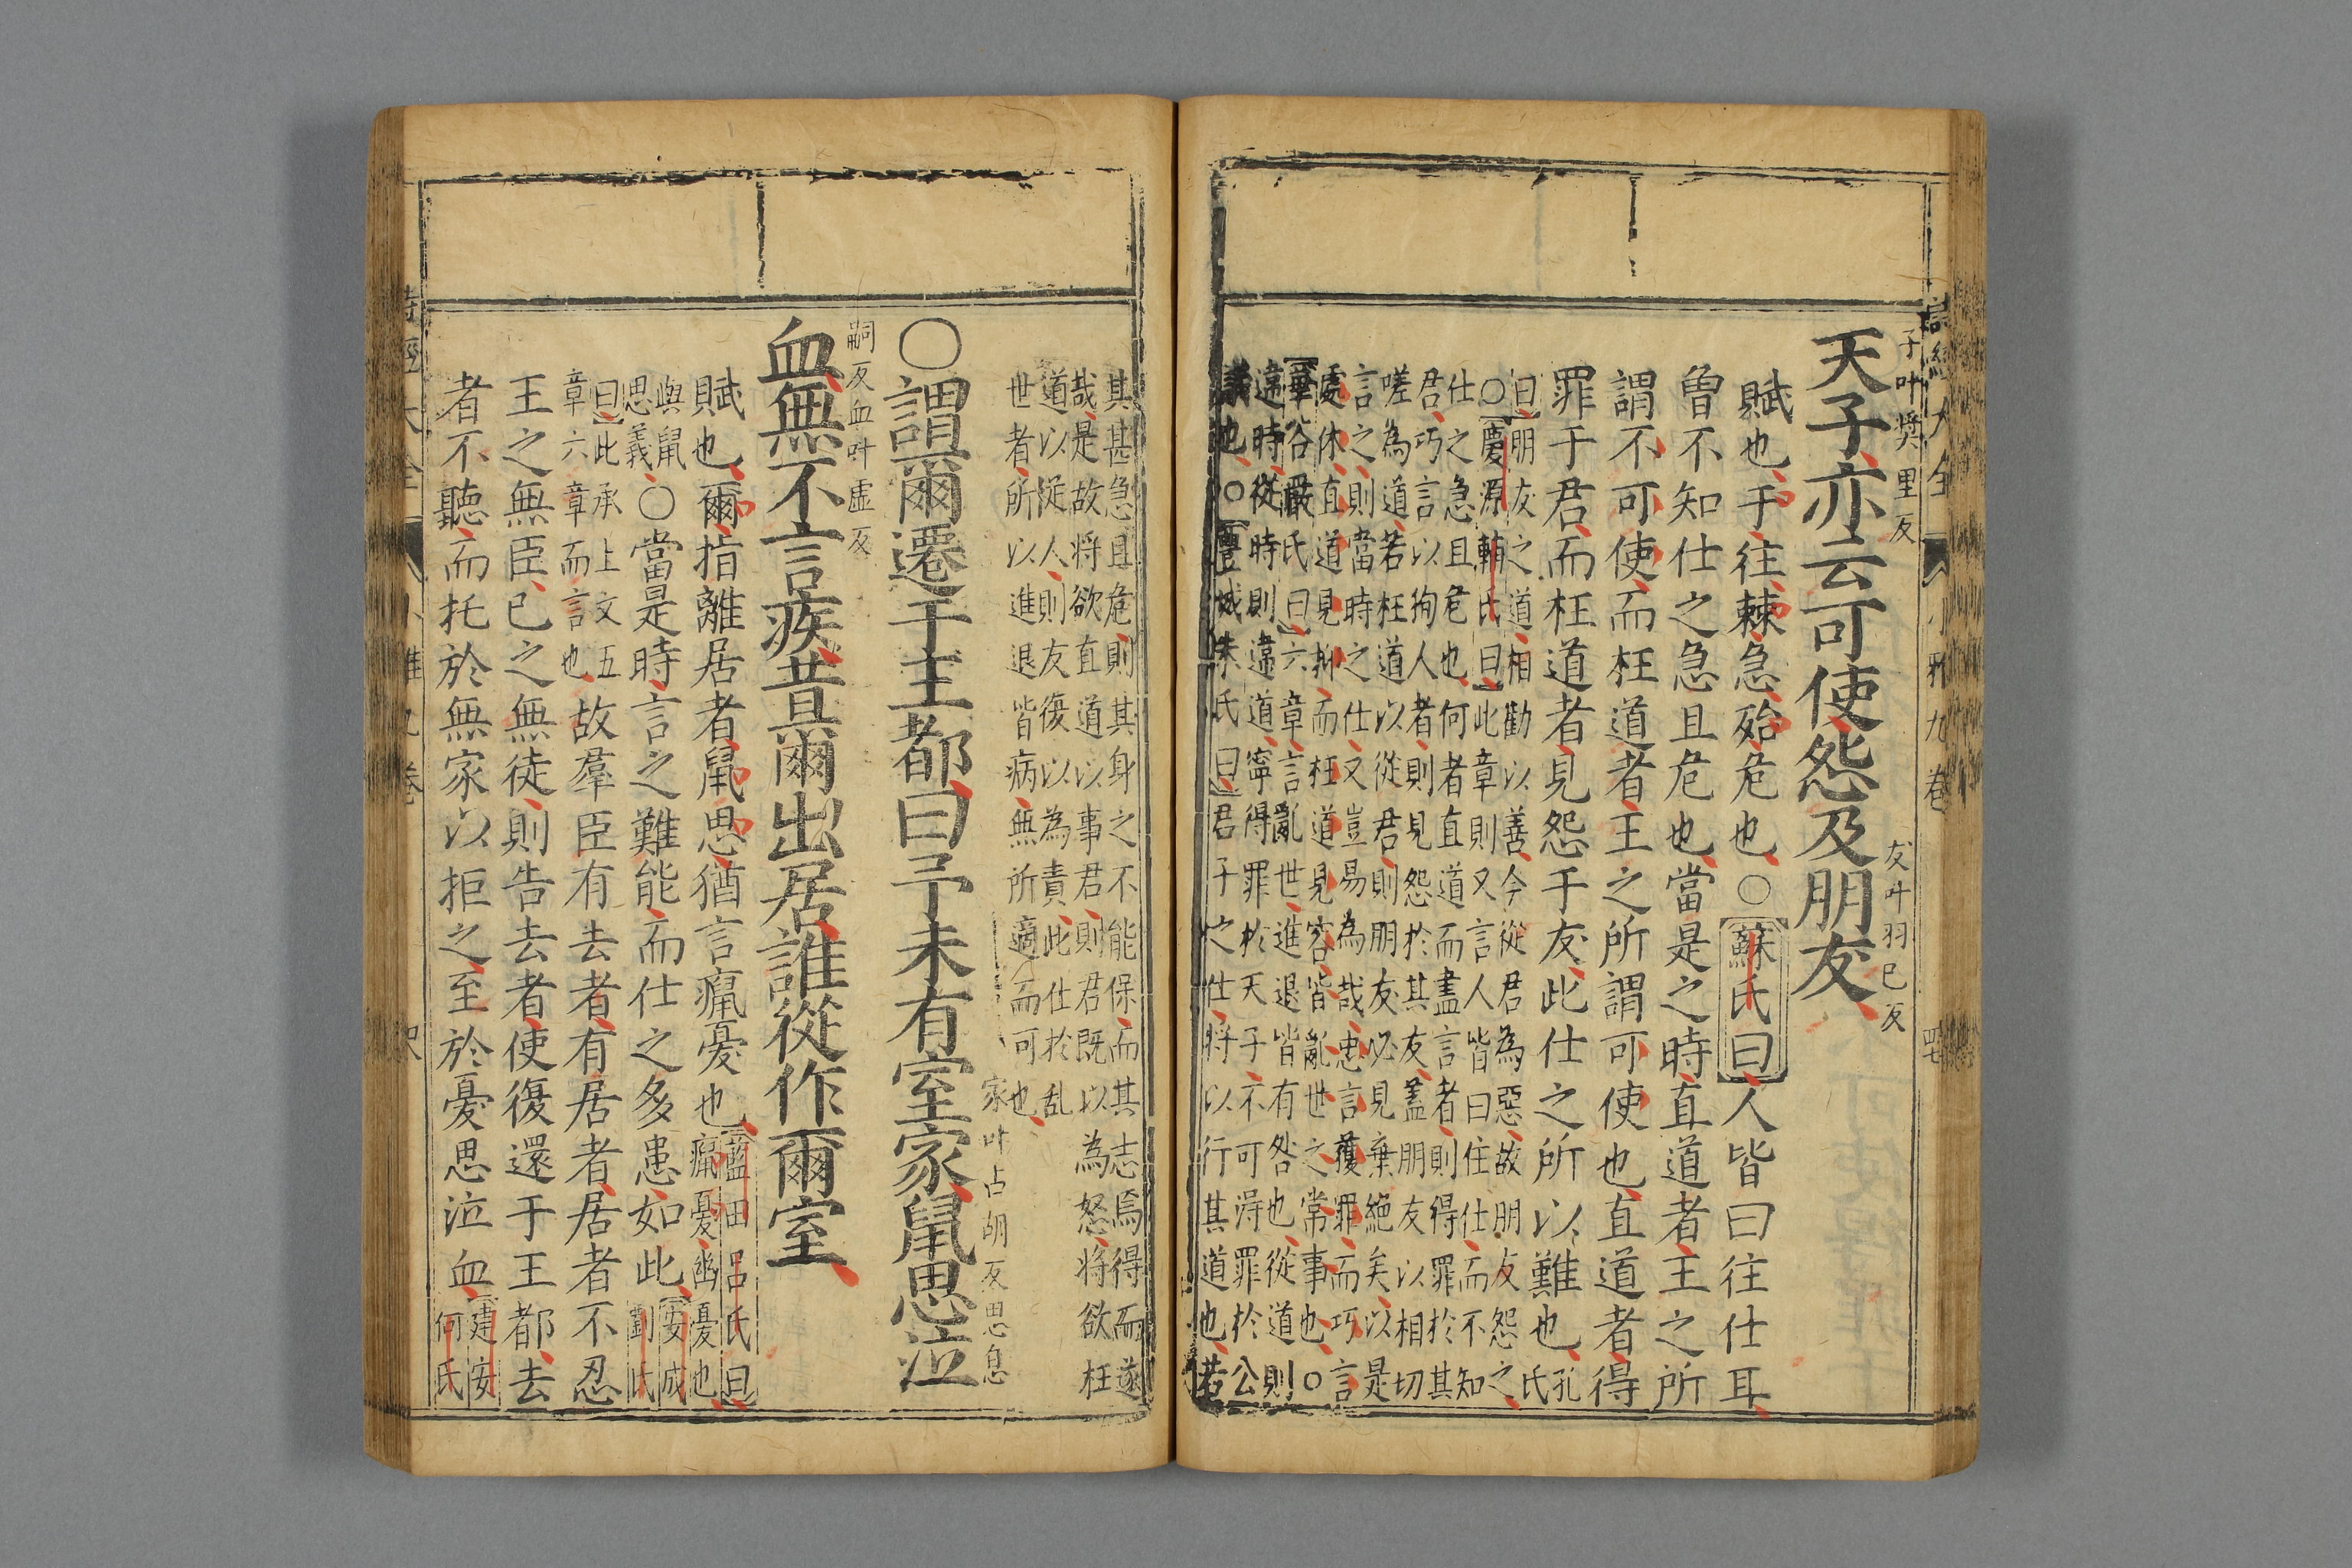 詩經大全 小雅九卷 四七
子叶奬里反 友叶羽已反
天子亦云可使怨及朋友
賦也于往棘急殆危也○蘇氏曰人皆曰往仕耳
曾不知仕之急且危也當是之時直道者王之所
謂不可使而枉道者王之所謂可使也直道者得
罪于君而枉道者見怨于友此仕之所以難也孔氏
曰朋友之道相勸以善今從君為惡故朋友怨之
○慶源輔氏曰此章則又言人皆曰往仕而不知
仕之急且危也何者直道而盡言者則得罪於其
君巧言以狥人者則見怨於其友蓋朋友以相切
嗟為道若枉道以從君則朋友必見棄絶矣以是
言之則當時之仕又豈易為哉忠言獲罪而巧言
處休直道見抑而枉道見容皆亂世之常事也○
華谷嚴氏曰六章言亂世進退皆有咎也從道則
違時從時則違道寧得罪於天子不可得罪於公
議也○豐城朱氏曰君子之仕將以行其道也若
其甚急且危則其身之不能保而其志焉得而遂
哉是故将欲直道以事君則君既以為怒将欲枉
道以從人則友復以為責此仕於乱
世者所以進退皆病無所適而可也
家叶古胡反思息
○謂爾遷于王都曰予未有室家鼠思泣
嗣反血叶虛反
血無不言疾昔爾出居誰從作爾室
賦也爾指離居者鼠思猶言癙憂也藍田呂氏曰
癙憂幽憂也
與鼠
思義○當是時言之難能而仕之多患如此安成劉氏
曰此承上文五
章六章而言也故羣臣有去者有居者居者不忍
王之無臣已之無徒則告去者使復還于王都去
者不聽而托於無家以拒之至於憂思泣血建安何氏
詩經大全 小雅九卷